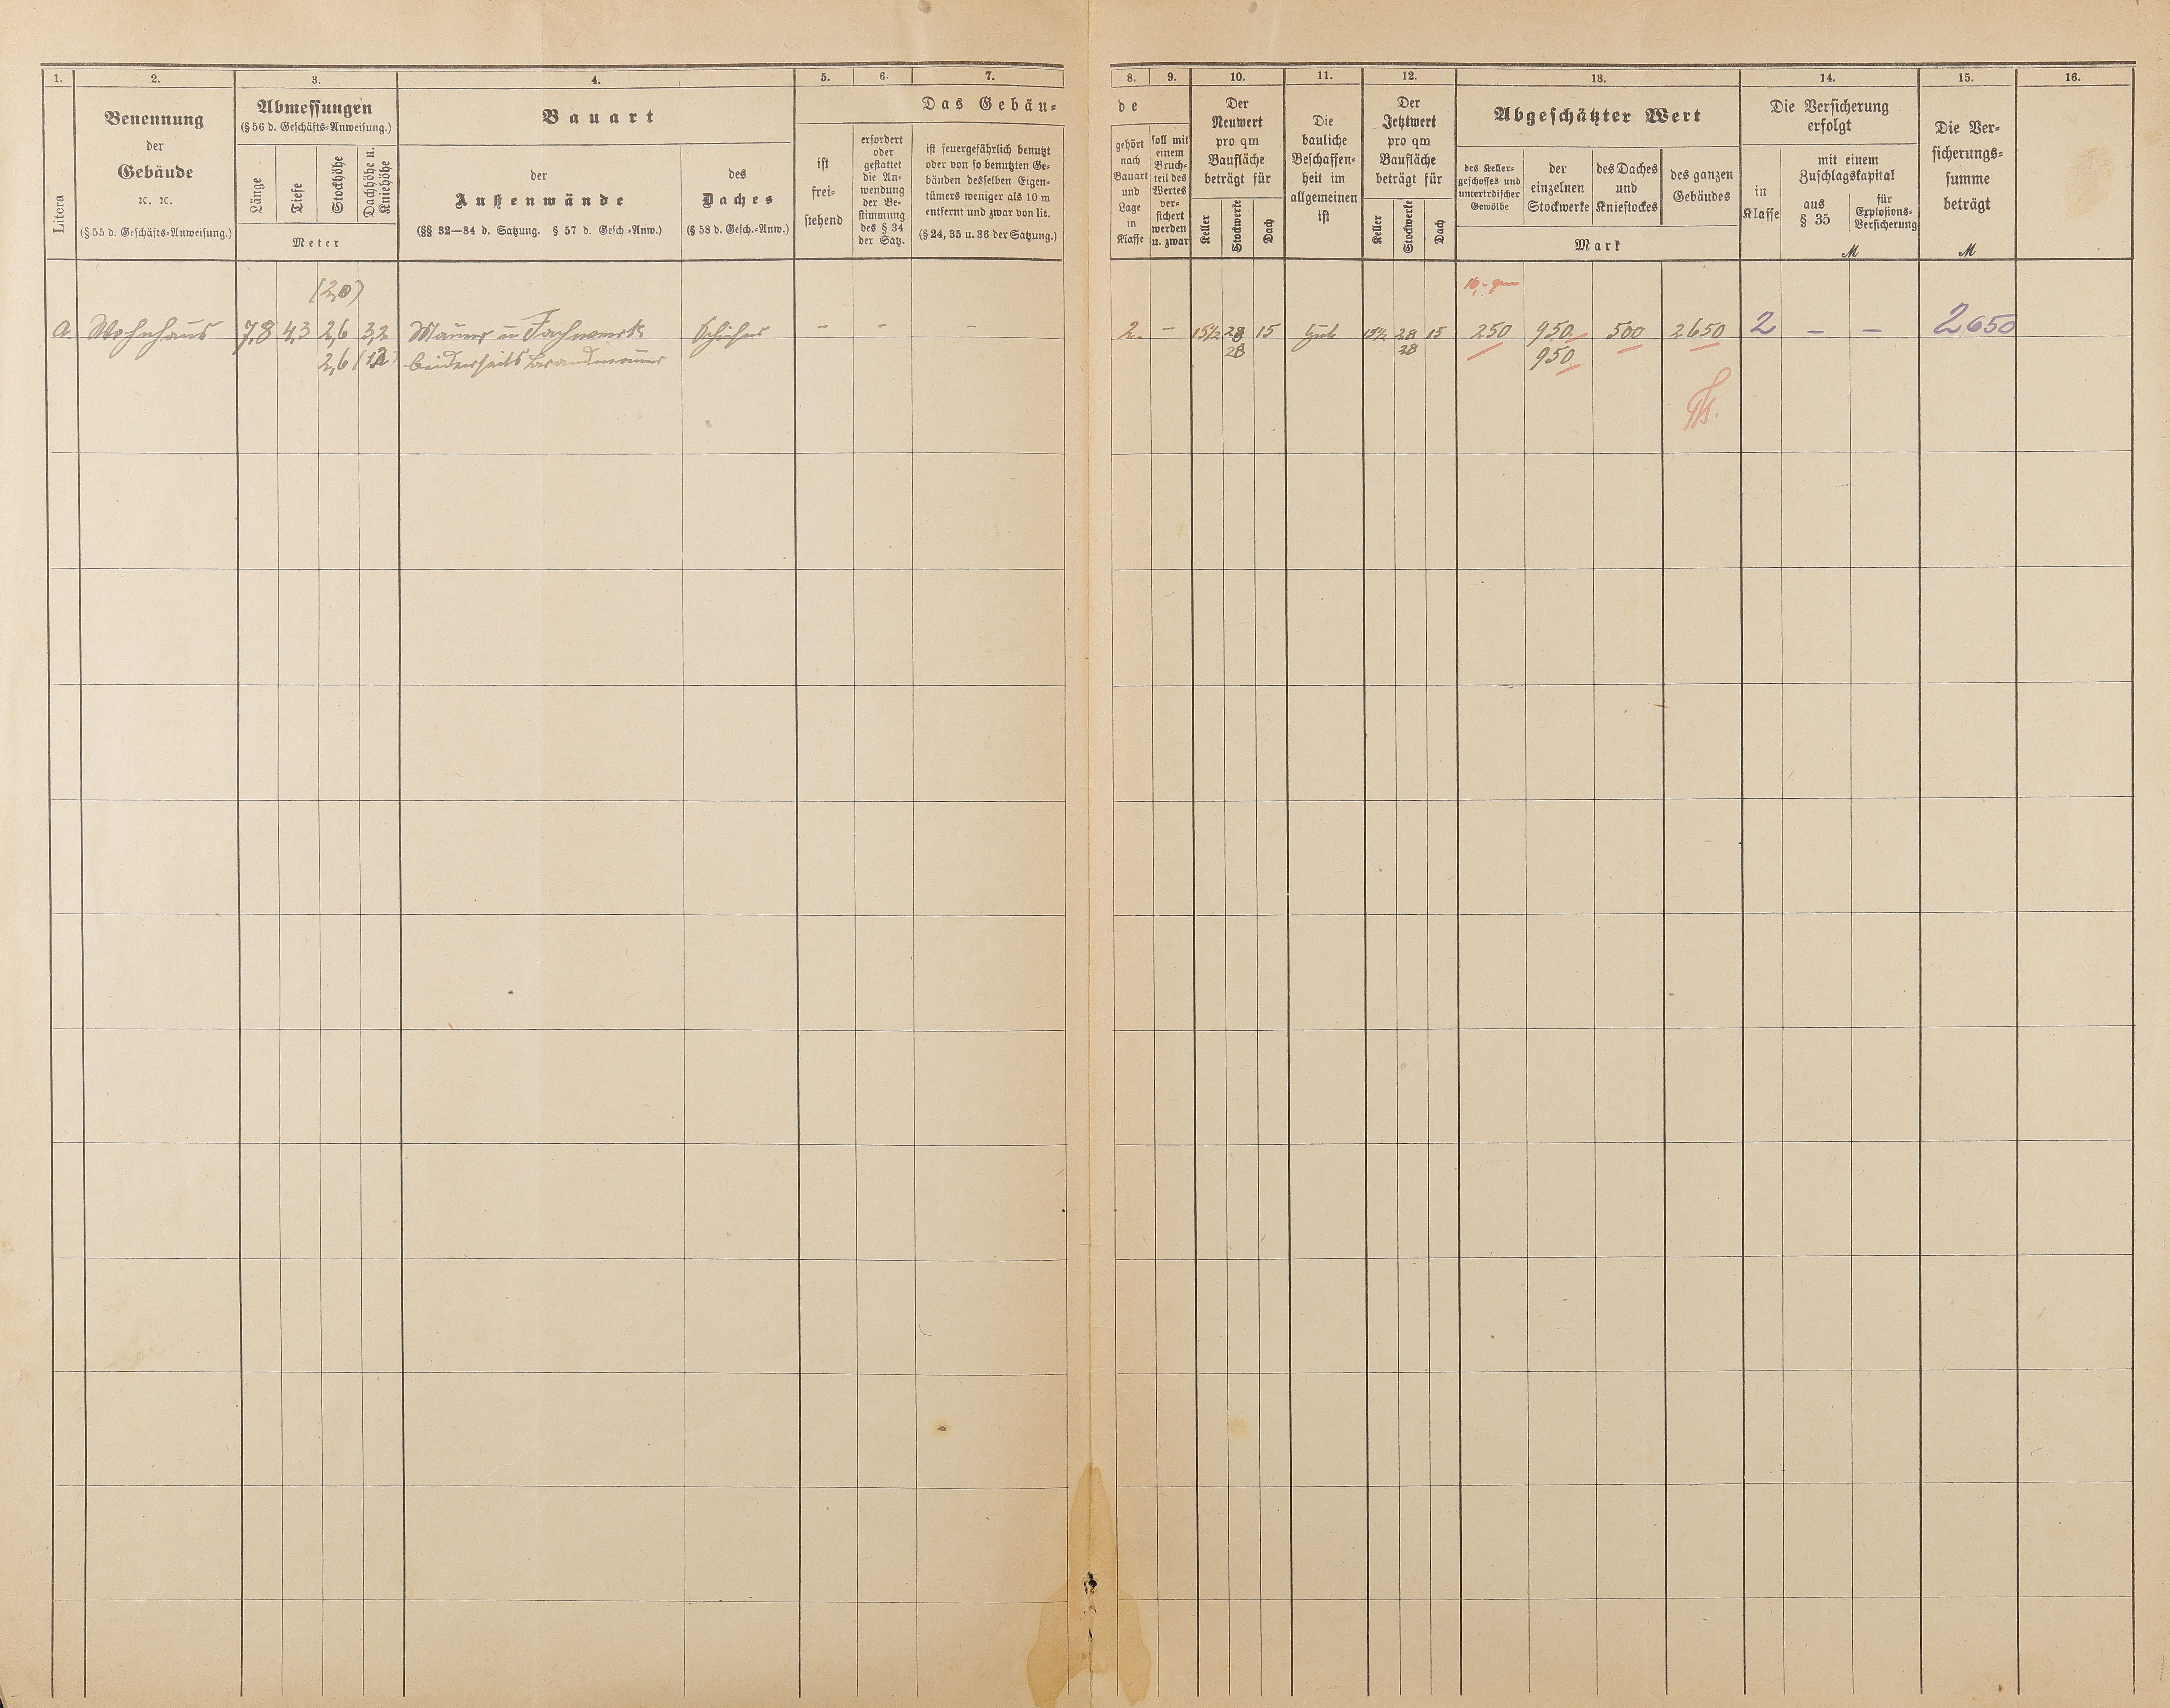 1. 2. 3. 4. 5. 6. 7. 8. 9. 10. 11. 12. 13. 14. 15. 16.
Litera
Benennung
der
Gebäude
ꝛc. ꝛc.
(§ 55 d. Geschäfts-Anweisung.)
Abmessungen
(§ 56 d. Geschäfts-Anweisung.)
Länge
Tiefe
Stockhöhe
Dachhöhe u.
Kniehöhe
Meter
Bauart
der
Außenwände
(§§ 32—34 d. Satzung. § 57 d. Gesch.-Anw.)
des
Daches
(§ 58 d. Gesch.-Anw.)
Das Gebäu-
ist
frei-
stehend
erfordert
oder
gestattet
die An-
wendung
der Be-
stimmung
des § 34
der Satz.
ist feuergefährlich benutzt
oder von so benutzten Ge-
bäuden desselben Eigen-
tümers weniger als 10 m
entfernt und zwar von lit.
(§ 24, 35 u. 36 der Satzung.)
de
gehört
nach
Bauart
und
Lage
in
Klasse
soll mit
einem
Bruch-
teil des
Wertes
ver-
sichert
werden
u. zwar
Der
Neuwert
pro qm
Baufläche
beträgt für
Keller
Stockwerke
Dach
Die
bauliche
Beschaffen-
heit im
allgemeinen
ist
Der
Jetztwert
pro qm
Baufläche
beträgt für
Keller
Stockwerke
Dach
Abgeschätzter Wert
des Keller-
geschosses und
unterirdischer
Gewölbe
der
einzelnen
Stockwerke
des Daches
und
Kniestockes
des ganzen
Gebäudes
Mark
Die Versicherung
erfolgt
in
Klasse
mit einem
Zuschlagskapital
aus
§ 35
für
Explosions-
Versicherung
M
Die Ver-
sicherungs-
summe
beträgt
M
(2,0)
16,- qm
a. Wohnhaus 7,8 4,3 2,6 3,2 Mauer u Fachwerk Schiefer - - - 2. - 15½ 28 15 gut 15½ 28 15 250 950 500 2650 2 - - 2650
2,6 beiderseits Brandmauer 28 28 950